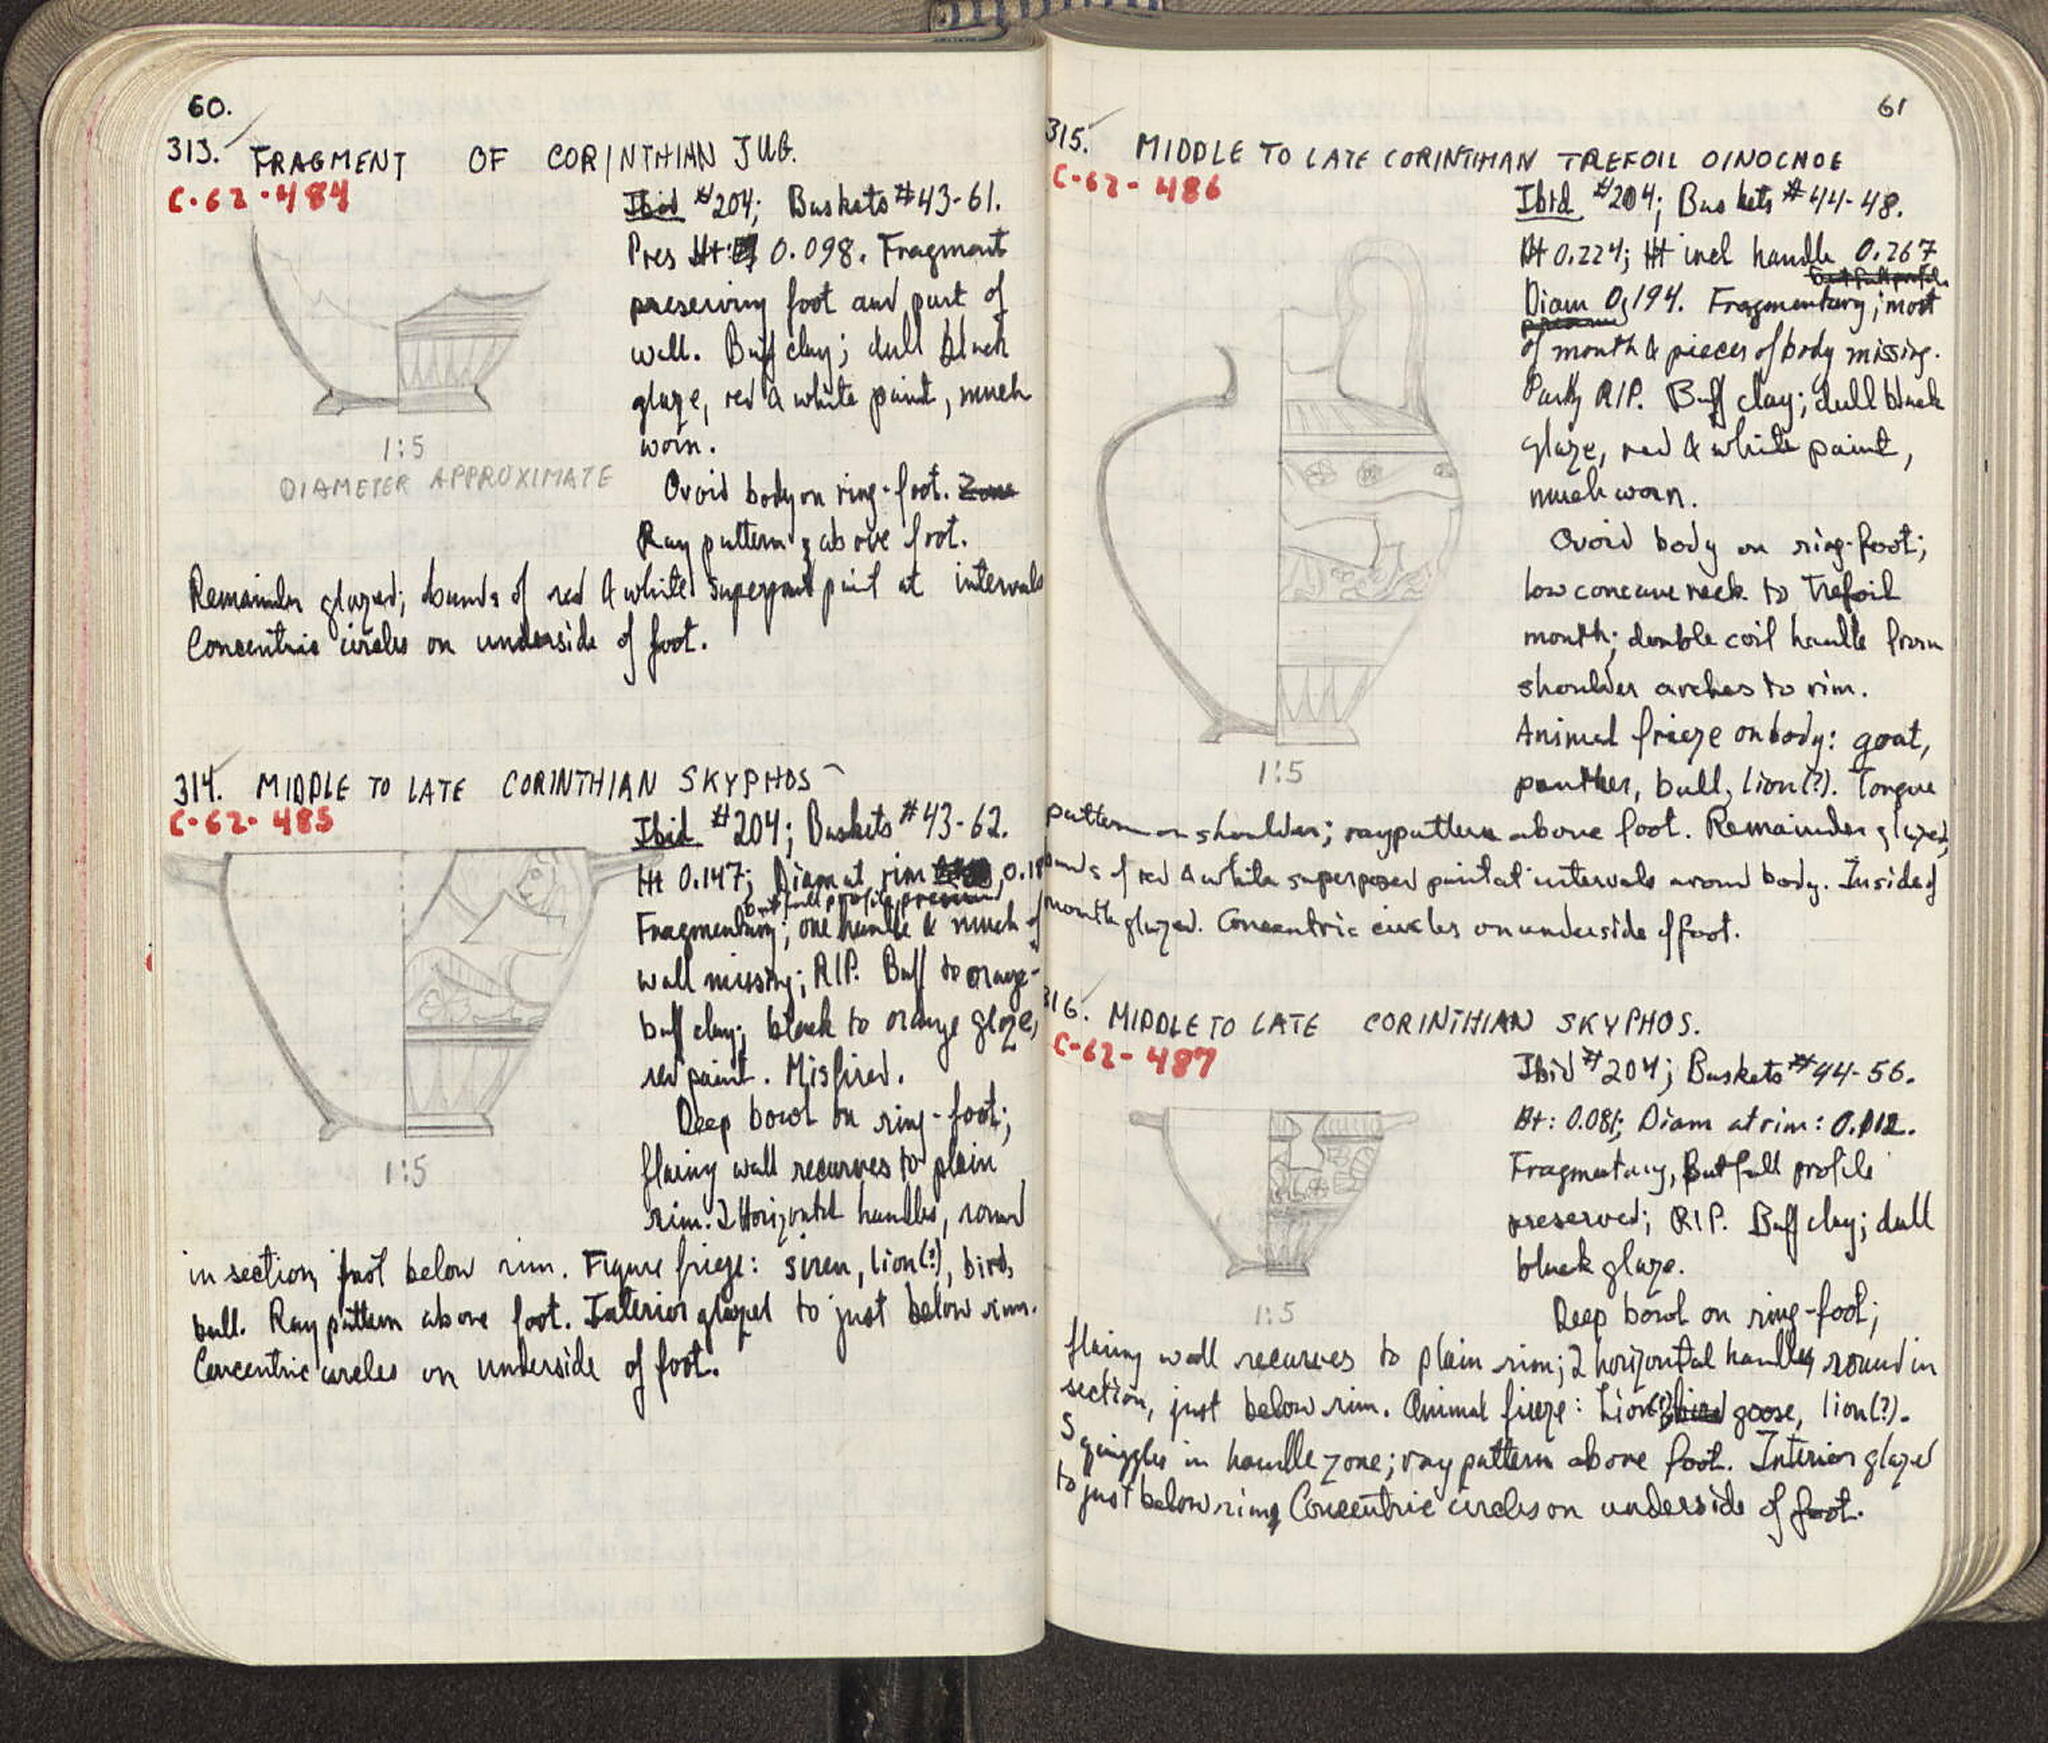 60.
313. FRAGMENT OF CORINTHIAN JUG.
C-62-484
Ibid #204; Baskets #43-61.
Pres Ht: 0.098. Fragment
preserving foot and part of
wall. Buff clay; dull black
glaze, red & white paint, much
worn.
1:5
DIAMETER APPROXIMATE
Ovoid body on ring-foot. Zone
Ray pattern above foot.
Remainder glazed; bands of red & white superposed paint at intervals
Concentric circles on underside of foot.
314. MIDDLE TO LATE CORINTHIAN SKYPHOS
C-62-485
Ibid #204; Baskets #43-62.
Ht 0.147; Diam at rim 0.18
but full profile preserved
Fragmentary; one handle & much of
wall missing; RIP. Buff to orange-
buff clay; black to orange glaze,
red paint. Misfired.
Deep bowl on ring-foot;
1:5
flaring wall recurves to plain
rim. 2 Horizontal handles, round
in section, just below rim. Figure frieze: siren, lion(?), bird,
bull. Ray pattern above foot. Interior glazed to just below rim.
Concentric circles on underside of foot.
61
315. MIDDLE TO LATE CORINTHIAN TREFOIL OINOCHOE
C-62-486
Ibid #204; Baskets #44-48.
Ht 0.224; Ht incl handle 0.267
but full profile
Diam 0.194. Fragmentary; most
of mouth & pieces of body missing.
Partly RIP. Buff clay; dull black
glaze, red & white paint,
much worn.
Ovoid body on ring-foot;
low concave neck to trefoil
mouth; double coil handle from
shoulder arches to rim.
Animal frieze on body: goat,
1:5
panther, bull, lion(?). Tongue
pattern on shoulder; ray pattern above foot. Remainder glazed,
bands of red & white superposed paint at intervals around body. Inside of
mouth glazed. Concentric circles on underside of foot.
316. MIDDLE TO LATE CORINTHIAN SKYPHOS.
C-62-487
Ibid #204; Baskets #44-56.
Ht: 0.081; Diam at rim: 0.112.
Fragmentary, But full profile
preserved; RIP. Buff clay; dull
black glaze.
1:5
Deep bowl on ring-foot;
flaring wall recurves to plain rim; 2 horizontal handles, round in
section, just below rim. Animal frieze: Lion(?), bird goose, lion(?).
Squiggles in handle zone; ray pattern above foot. Interior glazed
to just below rim. Concentric circles on underside of foot.